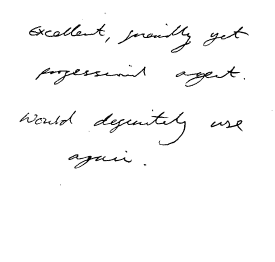 Excellent, friendly yet
professional agent.
Would definitely use
again.